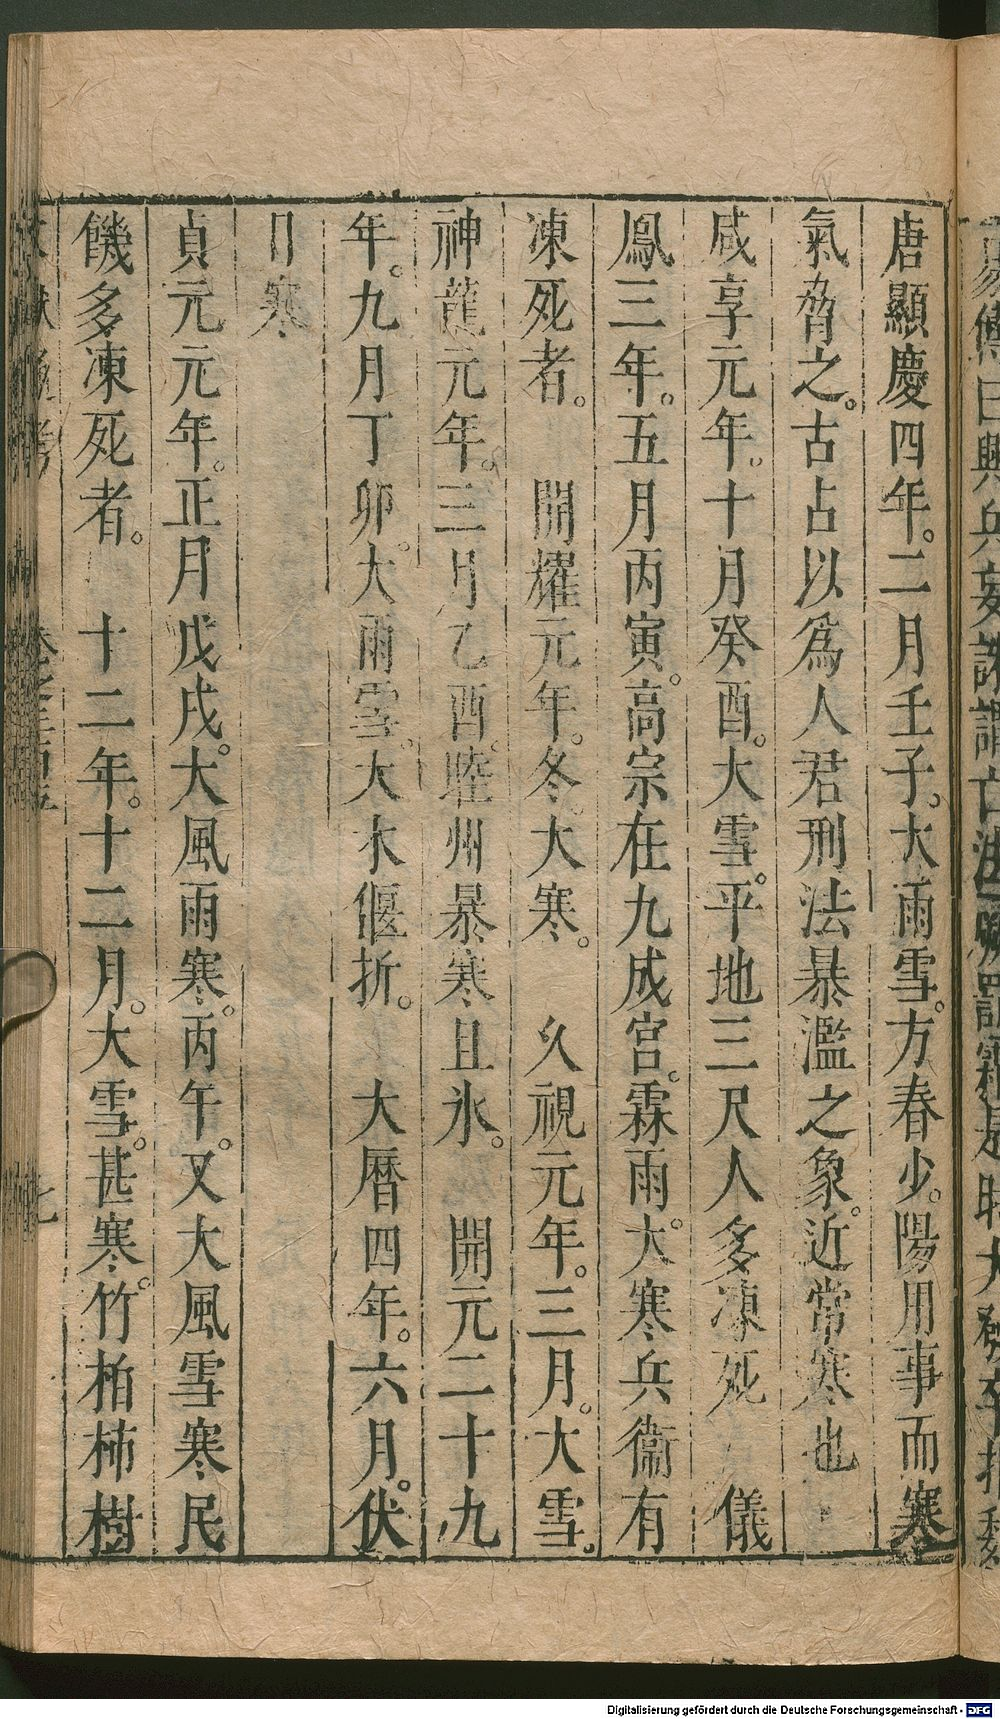 唐顯慶四年。二月壬子。大雨雪。方春少。陽用事而寒
氣脅之。古占以爲人君刑法暴濫之象。近常寒也
咸享元年。十月癸酉。大雪。平地三尺人多凍死 儀
鳳三年。五月丙寅。高宗在九成宮。霖雨。大寒兵衞有
凍死者。 開耀元年。冬。大寒。 久視元年。三月。大雪。
神龍元年。三月乙酉。睦州暴寒且氷。 開元二十九
年。九月丁卯。大雨雪。大木偃折。 大曆四年。六月。伏
日寒
貞元元年。正月戊戌。大風雨寒。丙午。又大風雪寒民
饑多凍死者。 十二年。十二月。大雪。甚寒。竹柏柿樹
Digitalisierung gefördert durch die Deutsche Forschungsgemeinschaft - DFG